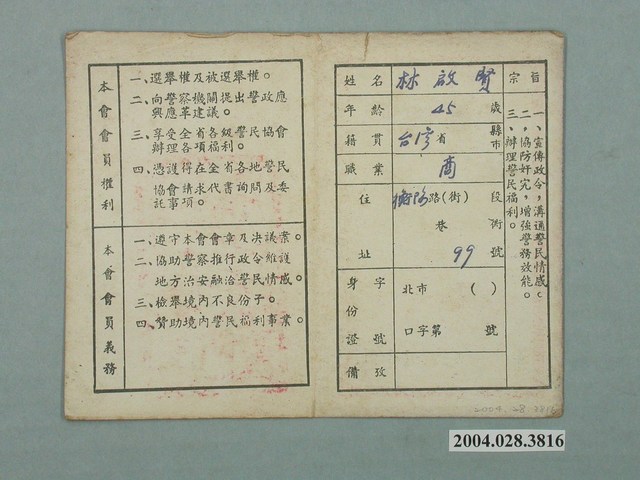 本會會員權利
一、選舉權及被選舉權。
二、向警察機關提出警政應
興應革建議。
三、享受全省各級警民協會
辦理各項福利。
四、憑護得在全省各地警民
協會請求代書詢問及委
託事項。
本會會員義務
一、遵守本會會章及決議案。
二、協助警察推行政令維護
地方治安融洽警民情感。
三、檢舉境內不良份子。
四、贊助境內警民福利事業。
姓名 林啟賢
年齡 45 歲
籍貫 台灣省 縣市
職業 商
住址 衡陽路(街) 段
巷 衖
99 號
身份證字號 北市 ( )
口字第 號
備攷
宗旨
一、宣傳政令，溝通警民情感。
二、協防奸宄，增強警務效能。
三、辦理警民福利。
2004.28.3816
2004.028.3816